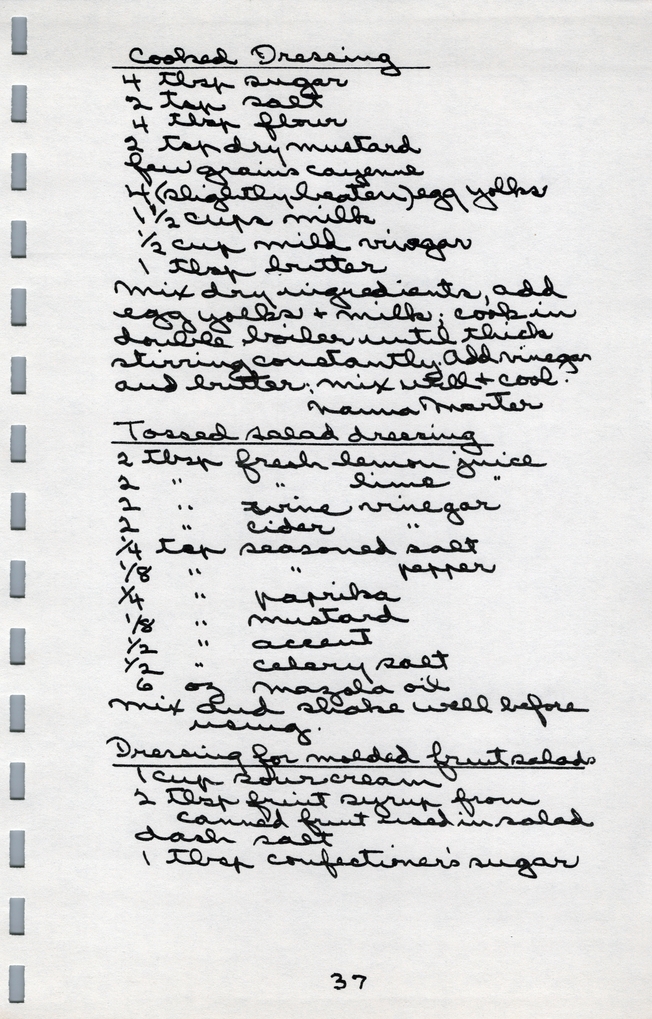 Cooked Dressing
4 tbsp sugar
2 tsp salt
4 tbsp flour
2 tsp dry mustard
few grains cayenne
4 (slightly beaten) egg yolks
1 1/2 cups milk
1/2 cup mild vinegar
1 tbsp butter
Mix dry ingredients, add
egg yolks + milk; cook in
double boiler until thick
stirring constantly. Add vinegar
and butter; mix well + cool.
Nanna Marter
Tossed salad dressing
2 tbsp fresh lemon juice
2 " " lime "
2 " wine vinegar
2 " cider "
1/4 tsp seasoned salt
1/8 " " pepper
1/4 " paprika
1/8 " mustard
1/2 " accent
1/2 " celery salt
6 oz mazola oil
Mix and shake well before
using.
Dressing for molded fruit salads
1 cup sour cream
2 tbsp fruit syrup from
canned fruit used in salad
dash salt
1 tbsp confectioner's sugar
37